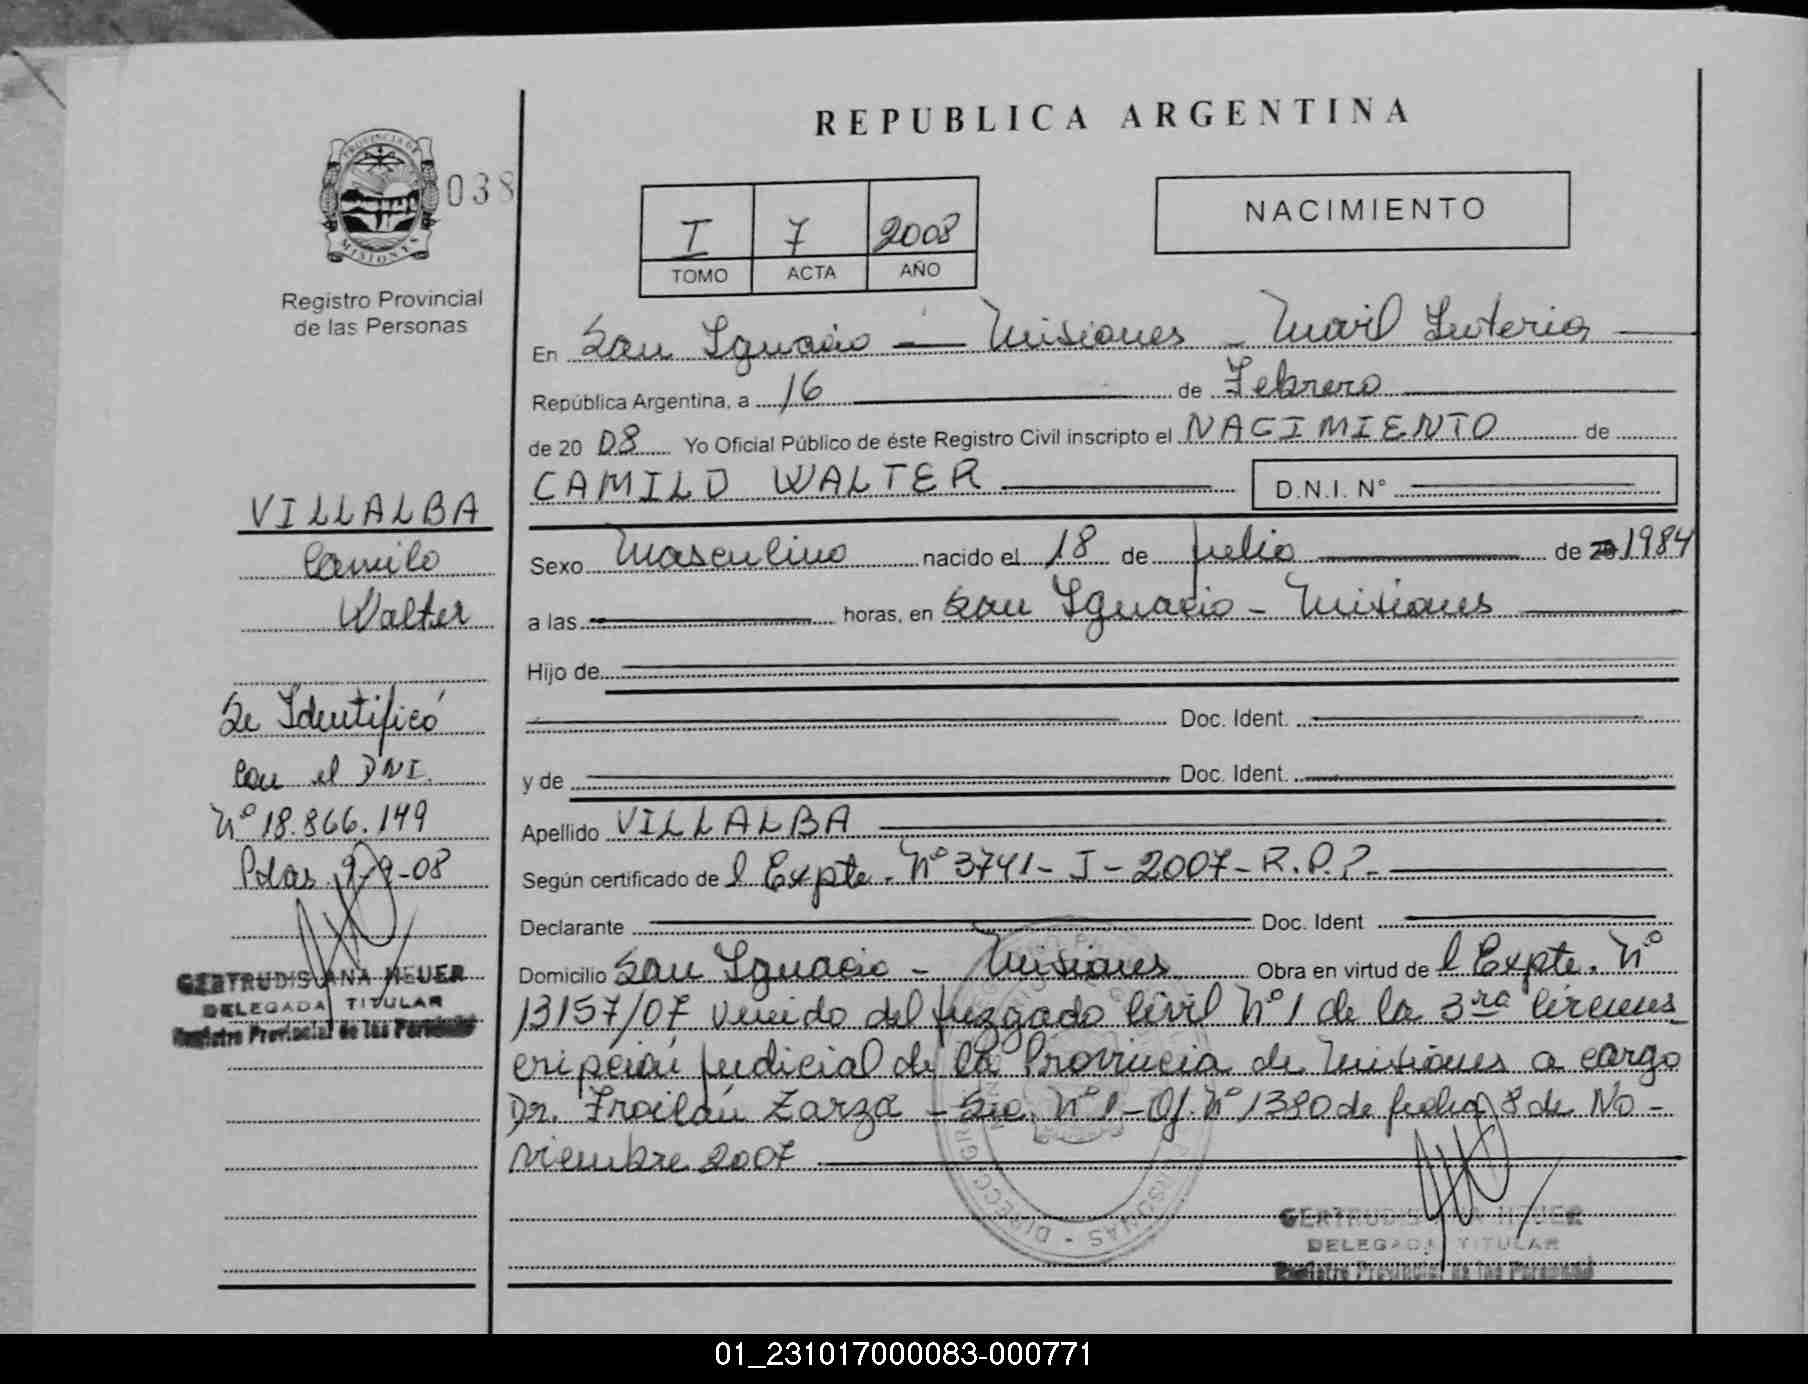 REPUBLICA ARGENTINA
PROVINCIA DE
MISIONES
038
Registro Provincial
de las Personas
I 7 2008
TOMO ACTA AÑO
NACIMIENTO
En San Ignacio - Misiones - Movil Interior
República Argentina, a 16 de Febrero
de 20 08 Yo Oficial Público de éste Registro Civil inscripto el NACIMIENTO de
CAMILO WALTER D.N.I. N°
Sexo Masculino nacido el 18 de Julio de 20 1984
a las horas, en San Ignacio - Misiones
Hijo de
Doc. Ident.
y de Doc. Ident.
Apellido VILLALBA
Según certificado de l Expte. N° 3741 - J - 2007 - R.P.P.
Declarante Doc. Ident
Domicilio San Ignacio - Misiones Obra en virtud de l Expte. N°
13157/07 venido del Juzgado Civil N° 1 de la 3ra Circuns
cripción Judicial de la Provincia de Misiones a cargo
Dr. Froilán Zarza - N° 1 - Of. N° 1390 de fecha 8 de No-
viembre 2007
GERTRUDIS ANA HEUER
DELEGADA TITULAR
Registro Provincial de las Personas
VILLALBA
Camilo
Walter
Se Identificó
con el DNI.
N° 18.866.149
Pdas. 9-9-08
GERTRUDIS ANA HEUER
DELEGADA TITULAR
Registro Provincial de las Personas
01_231017000083-000771